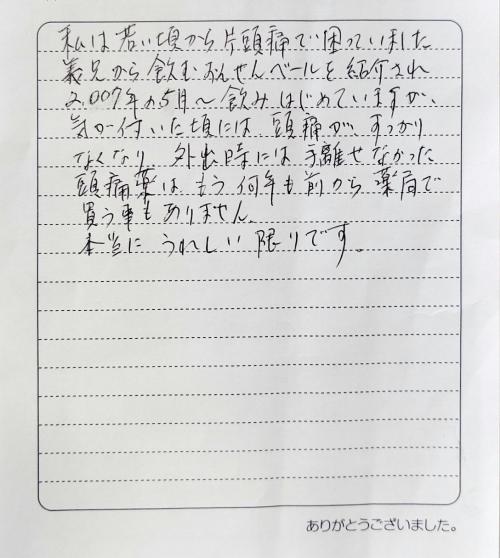 私は若い頃から片頭痛で困っていました
義兄から飲むおんせんベールを紹介され
2,007年の5月〜飲みはじめていますが、
気が付いた頃には、頭痛が、すっかり
なくなり、外出時には手離せなかった
頭痛薬は、もう何年も前から薬局で
買う事もありません。
本当にうれしい限りです。
ありがとうございました。